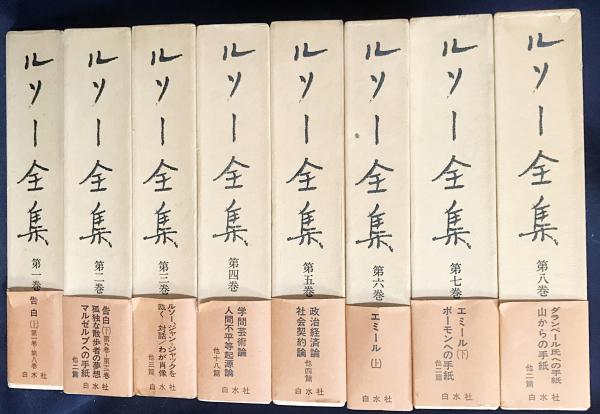 ルソー全集
第一巻
告白(上)第一巻・第八巻
白水社
ルソー全集
第二巻
告白(下)第九巻・第十二巻
孤独な散歩者の夢想
マルゼルブへの手紙
他二篇
白水社
ルソー全集
第三巻
ルソー、ジャン=ジャックを
裁く─対話/わが肖像
他三篇
白水社
ルソー全集
第四巻
学問芸術論
人間不平等起源論
他十八篇
白水社
ルソー全集
第五巻
政治経済論
社会契約論
他四篇
白水社
ルソー全集
第六巻
エミール(上)
白水社
ルソー全集
第七巻
エミール(下)
ボーモンへの手紙
他二篇
白水社
ルソー全集
第八巻
ダランベール氏への手紙
山からの手紙
他一篇
白水社